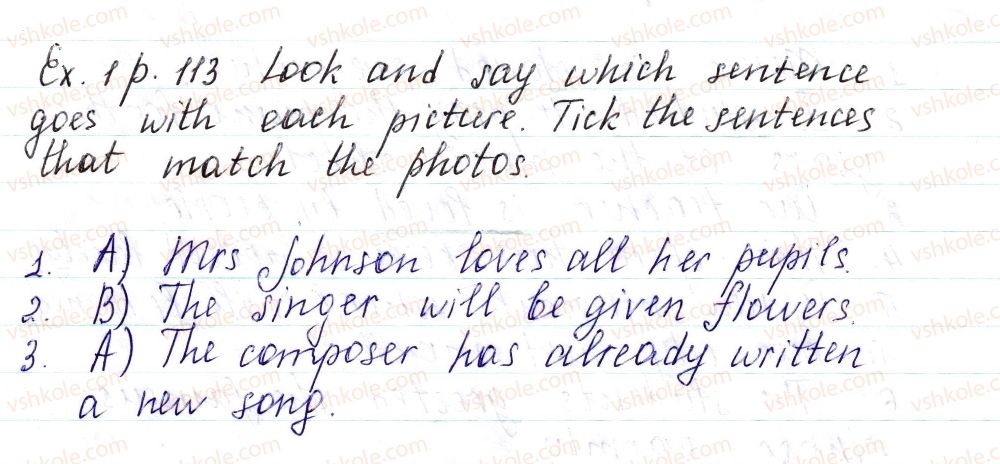 Ex. 1 p. 113 Look and say which sentence
goes with each picture. Tick the sentences
that match the photos.
1. A) Mrs Johnson loves all her pupils.
2. B) The singer will be given flowers.
3. A) The composer has already written
a new song.